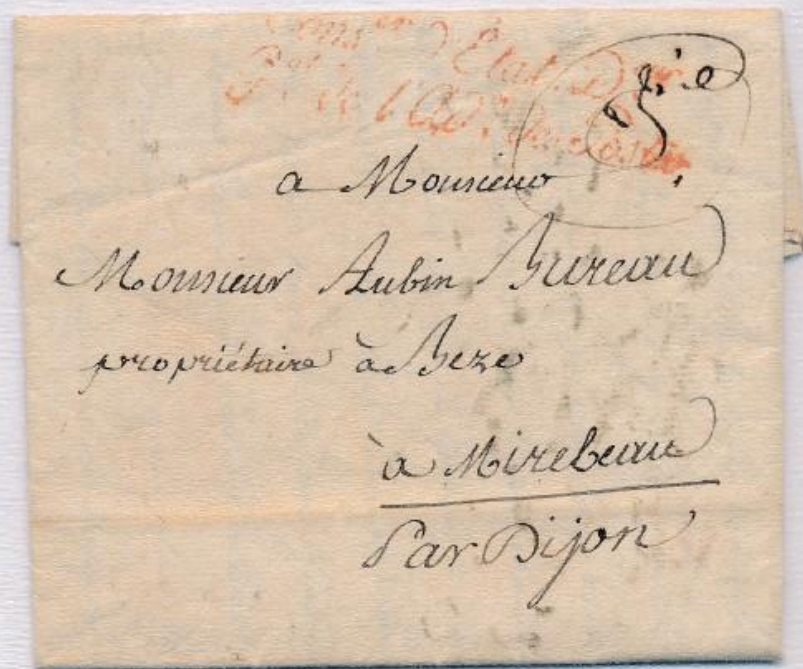 Cons.er d'État
de l'Ad.on
a Monsieur
Monsieur Aubin Bureau
propriétaire à Beze
à Mirebeau
Par Dijon